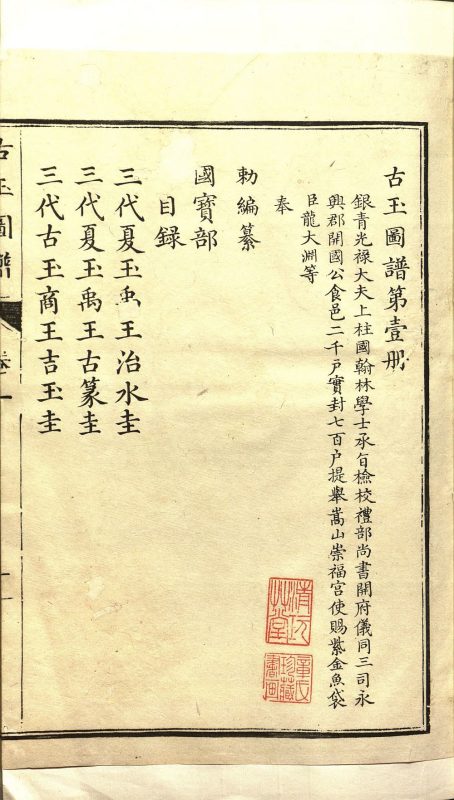 古玉圖譜第壹冊
銀青光祿大夫上柱國翰林學士承旨檢校禮部尚書開府儀同三司永
興郡開國公食邑二千戸實封七百户提舉嵩山崇福宮使賜紫金魚袋
臣龍大淵等
奉
勅編纂
國寳部
目録
三代夏玉禹王治水圭
三代夏玉禹王古篆圭
三代古玉商王吉玉圭
古玉圖譜
卷一
一
章氏
珍藏
書畫